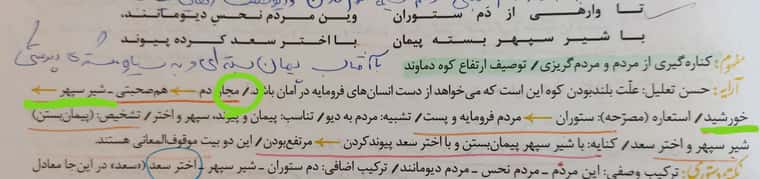 تا وارهی از دَم ستوران وین مردم نحسِ دیومانند،
با شیر سپهر بسته پیمان با اختر سعد کرده پیوند
با آفتاب پیمان بسته‌ای و به سیاره
مفهوم: کناره‌گیری از مردم و مردم‌گریزی / توصیف ارتفاع کوه دماوند
آرایه: حسن تعلیل: علّت بلندبودن کوه این است که می‌خواهد از دست انسان‌های فرومایه در اَمان باشد. / مجاز: دم ← هم‌صحبتی ـ شیر سپهر ←
خورشید / استعاره (مصرّحه): ستوران ← مردم فرومایه و پست / تشبیه: مردم به دیو / تناسب: پیمان و پیوند، سپهر و اختر / تشخیص: (پیمان‌بستن)
شیر سپهر و اختر سعد / کنایه: با شیر سپهر پیمان‌بستن و با اختر سعد پیوندکردن ← مرتفع‌بودن / این دو بیت موقوف‌المعانی هستند.
نکتهٔ دستوری: ترکیب وصفی: این مردم ـ مردم نحس ـ مردم دیومانند / ترکیب اضافی: دم ستوران ـ شیر سپهر ـ اختر سعد («سعد» در این‌جا معادل